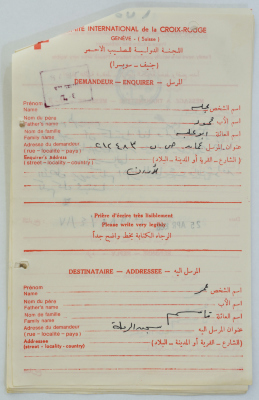 COMITÉ INTERNATIONAL de la CROIX-ROUGE
GENÈVE - (Suisse)
اللجنة الدولية للصليب الاحمر
(جنيف - سويسرا)
DEMANDEUR — ENQUIRER — المرسل
Prénom
Name
اسم الشخص
Nom du père
Father's name
اسم الأب
Nom de famille
Family name
اسم العائلة
Adresse du demandeur
(rue - locality - pays)
عنوان المرسل عمان ص.ب ٢١٢٤٨٣
Enquirer's Address
(street - locality - country)
(الشارع - القرية أو المدينة - البلاد)
الأردن
Prière d'écrire très lisiblement
Please write very legibly
الرجاء الكتابة بخط واضح جداً
DESTINATAIRE — ADDRESSEE — المرسل اليه
Prénom
Name
اسم الشخص عمر
Nom du père
Father's name
اسم الأب
Nom de famille
Family name
اسم العائلة قاسم
Adresse du demandeur
(rue - locality - pays)
عنوان المرسل اليه سجن الرملة
Addressee
(street - locality - country)
(الشارع - القرية أو المدينة - البلاد)